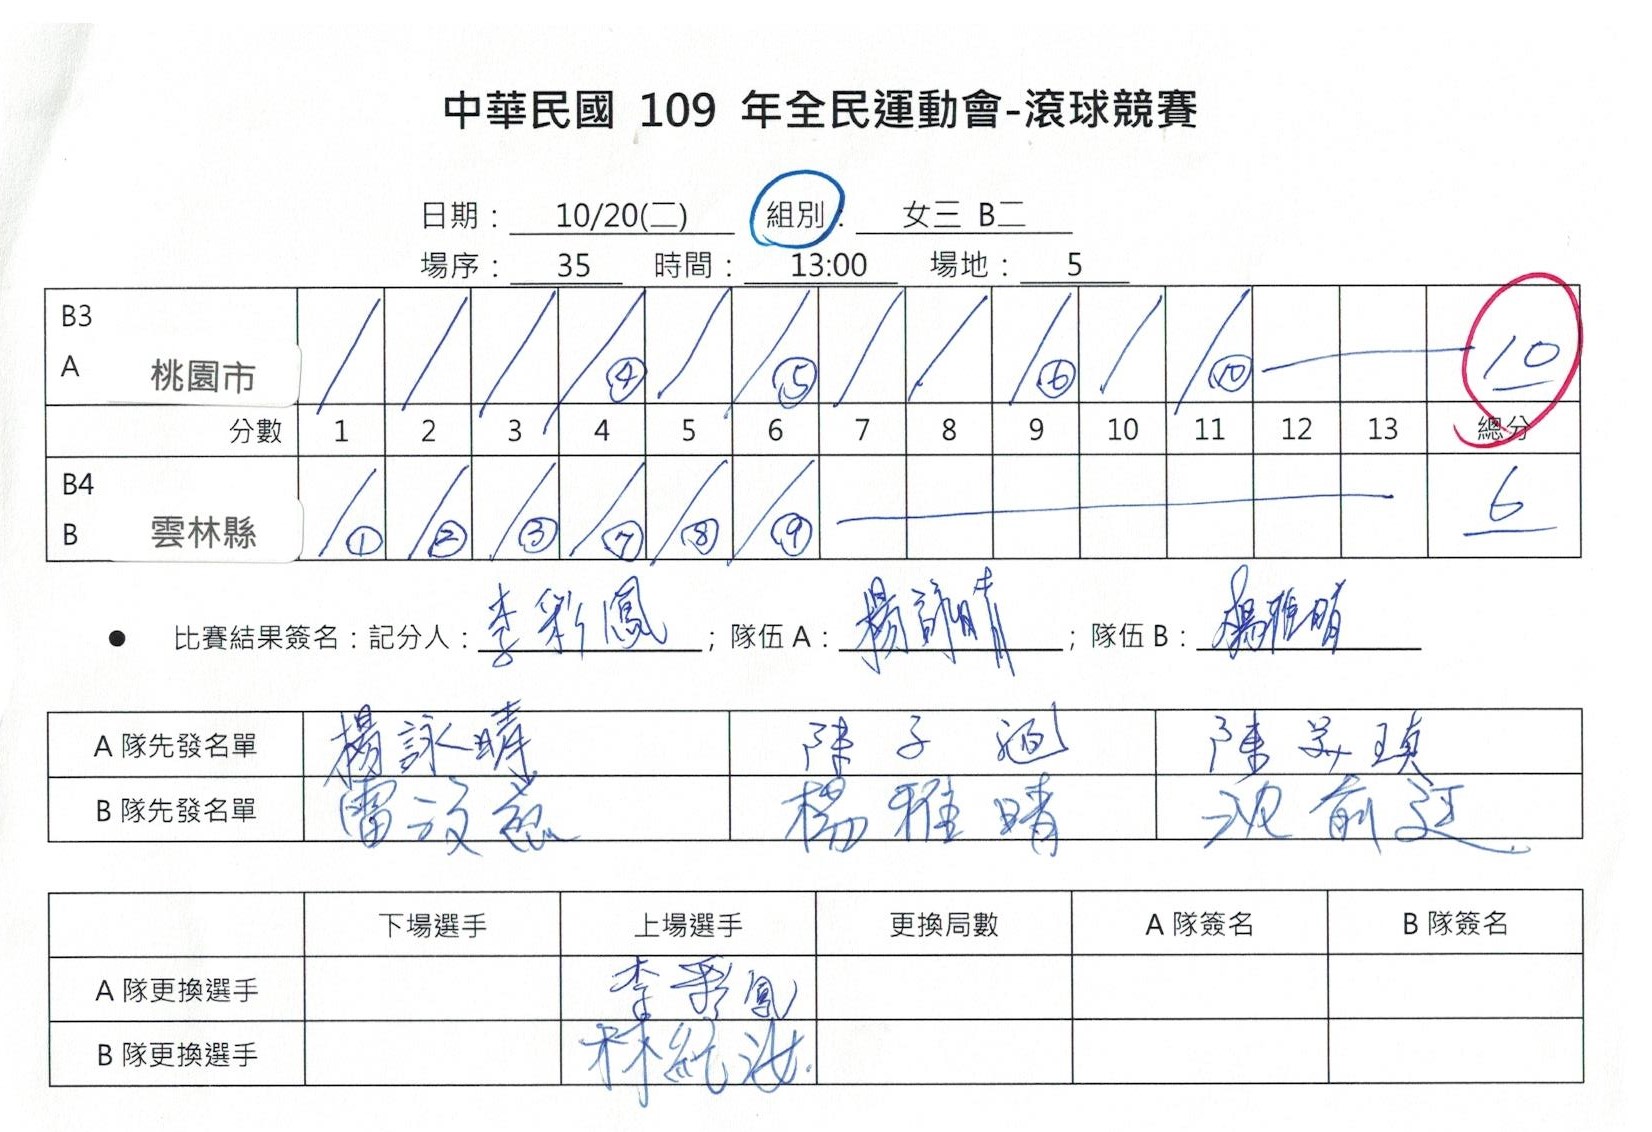 中華民國 109 年全民運動會-滾球競賽
日期： 10/20(二) 組別： 女三 B二
場序： 35 時間： 13:00 場地： 5
B3
A 桃園市 ④ ⑤ ⑥ ⑩ 10
分數 1 2 3 4 5 6 7 8 9 10 11 12 13 總分
B4
B 雲林縣 ① ② ③ ⑦ ⑧ ⑨ 6
● 比賽結果簽名：記分人： 李彩鳳 ；隊伍 A： 楊詠晴 ；隊伍 B： 楊雅晴
A 隊先發名單 楊詠晴 陳子 陳美瑱
B 隊先發名單 雷 楊雅晴 沈前
下場選手 上場選手 更換局數 A 隊簽名 B 隊簽名
A 隊更換選手 李彩鳳
B 隊更換選手 林純